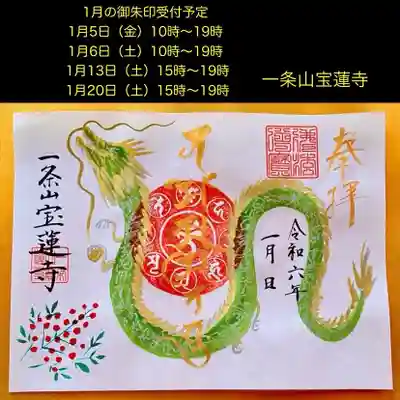 1月の御朱印受付予定
1月5日（金）10時〜19時
1月6日（土）10時〜19時
1月13日（土）15時〜19時
1月20日（土）15時〜19時
一条山宝蓮寺
奉拝
令和六年
一月 日
一条山宝蓮寺